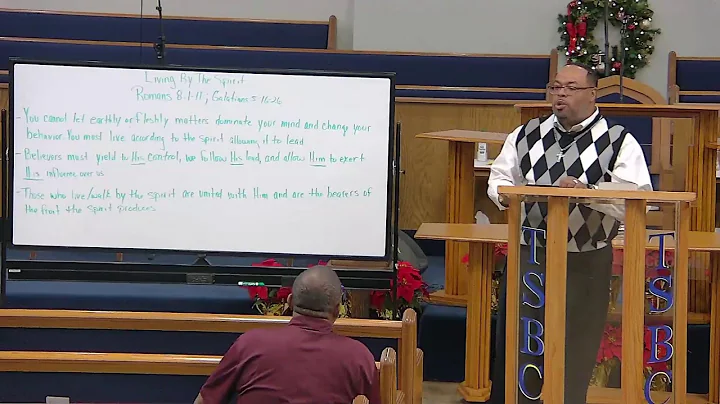 Living By The Spirit
Romans 8:1-11; Galatians 5:16-26
- You cannot let earthly or fleshly matters dominate your mind and change your
behavior. You must live according to the spirit allowing it to lead
- Believers must yield to His control, we follow His lead, and allow Him to exert
His influence over us
- Those who live/walk by the spirit are united with Him and are the bearers of
the fruit the spirit produces
TSBC
TSBC